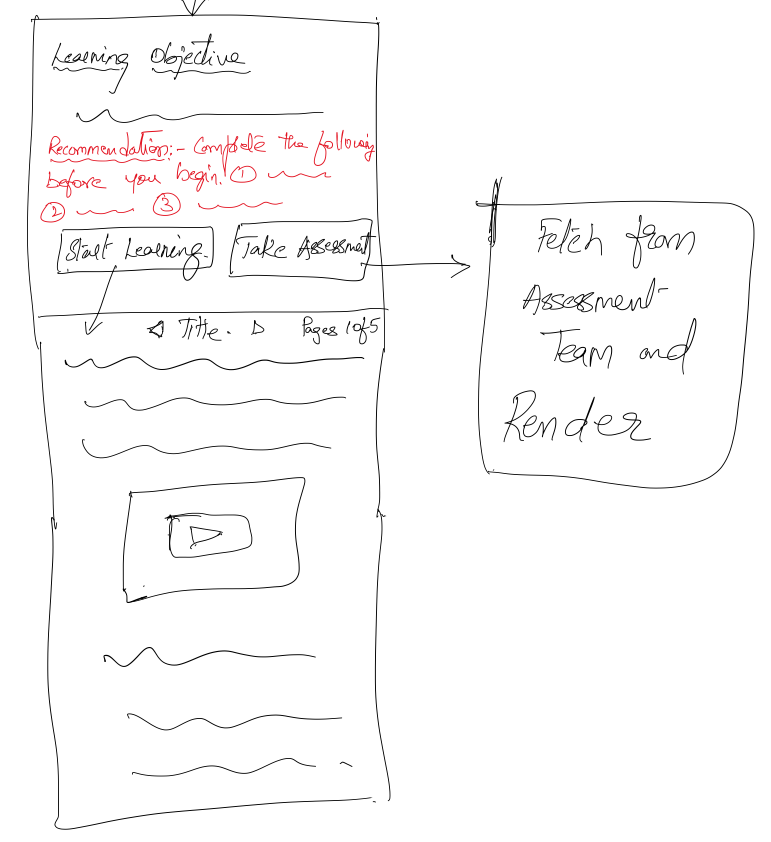 Learning Objective
Recommendation:- Complete the following
before you begin. ①
② ③
Start Learning. Take Assessment
Title. Pages 1 of 5
Fetch from
Assessment
Team and
Render